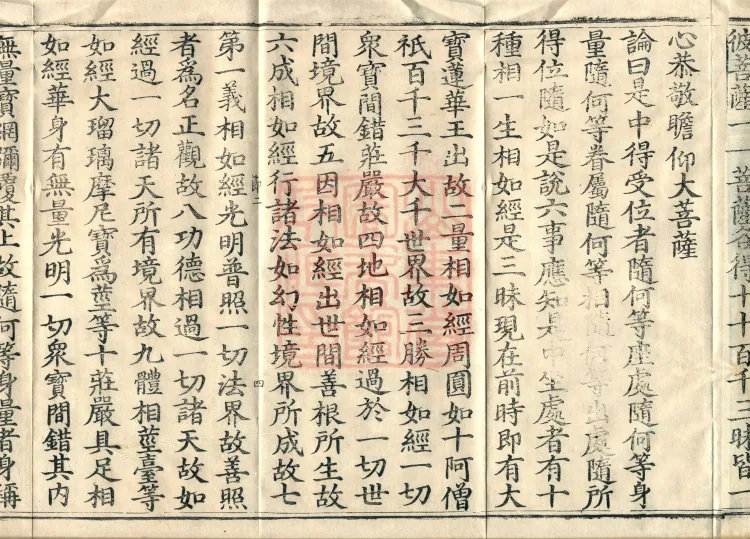 彼菩薩一一菩薩各得十十百千三昧皆一
心恭敬瞻仰大菩薩
論曰是中得受位者隨何等座處隨何等身
量隨何等眷屬隨何等相隨何等出處隨所
得位隨如是說六事應知是中坐處者有十
種相一生相如經是三昧現在前時即有大
寶蓮華王出故二量相如經周圓如十阿僧
祇百千三千大千世界故三勝相如經一切
衆寶間錯莊嚴故四地相如經過於一切世
間境界故五因相如經出世間善根所生故
六成相如經行諸法如幻性境界所成故七
四
第一義相如經光明普照一切法界故善照
者爲名正觀故八功德相過一切諸天故如
經過一切諸天所有境界故九體相莖臺等
如經大瑠璃摩尼寶爲莖等十莊嚴具足相
如經華身有無量光明一切衆寶間錯其内
無量寶網彌覆其上故隨何等身量者身稱